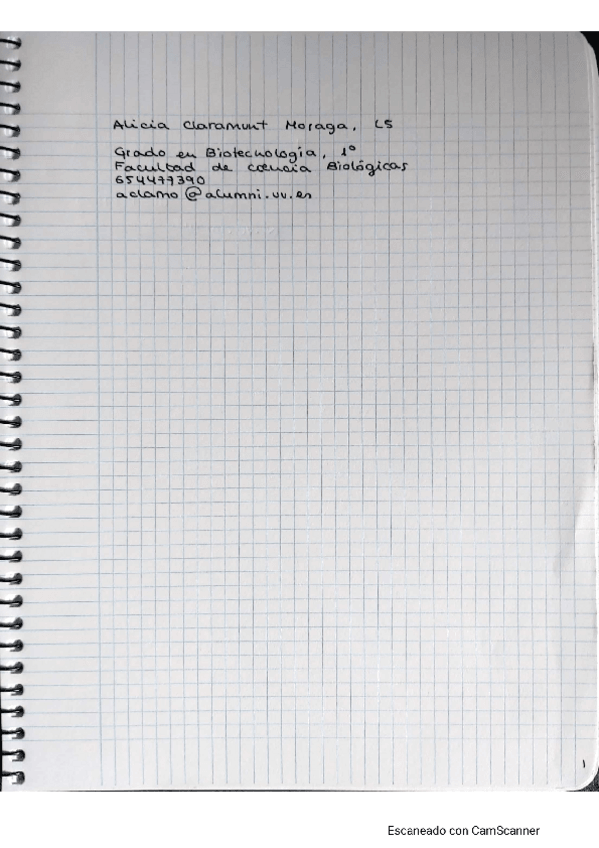 Alicia Claramunt Moraga, L5
Grado en Biotecnología, 1º
Facultad de ciencia Biológicas
654477390
aclamo@alumni.uv.es
1
Escaneado con CamScanner